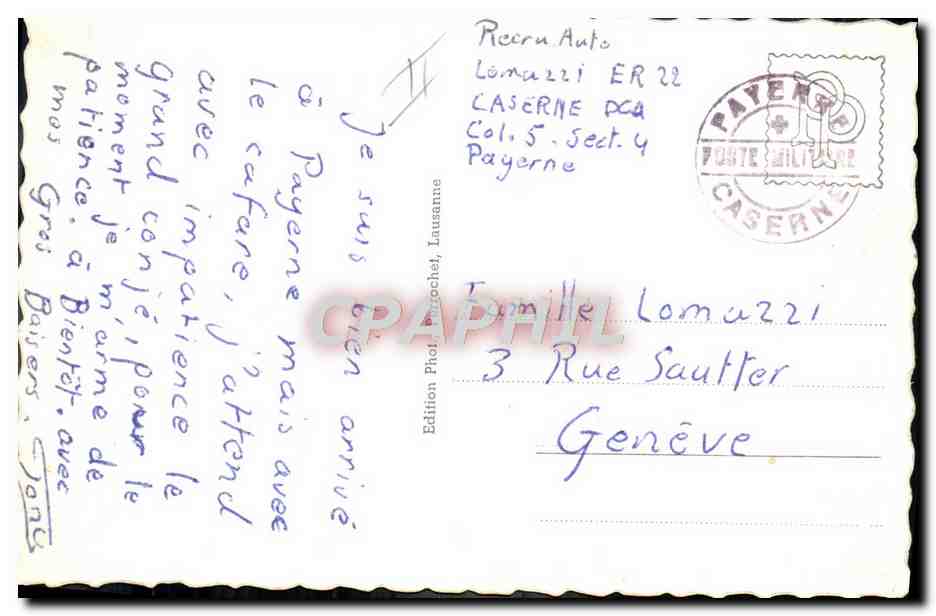 Recru Auto
Lomazzi ER 22
CASERNE DCA
Col. 5. Sect. 4
Payerne
PAYERNE
POSTE MILITAIRE
CASERNE
II
Je suis bien arrivé
à Payerne mais avec
le cafare, j'attend
avec impatience le
grand conjé, pour le
moment je m'arme de
patience. à Bientôt. avec
mos Gros Baisers. Tony
Edition Phot. Perrochet, Lausanne
CPAPHIL
Famille Lomazzi
3 Rue Sautter
Genève